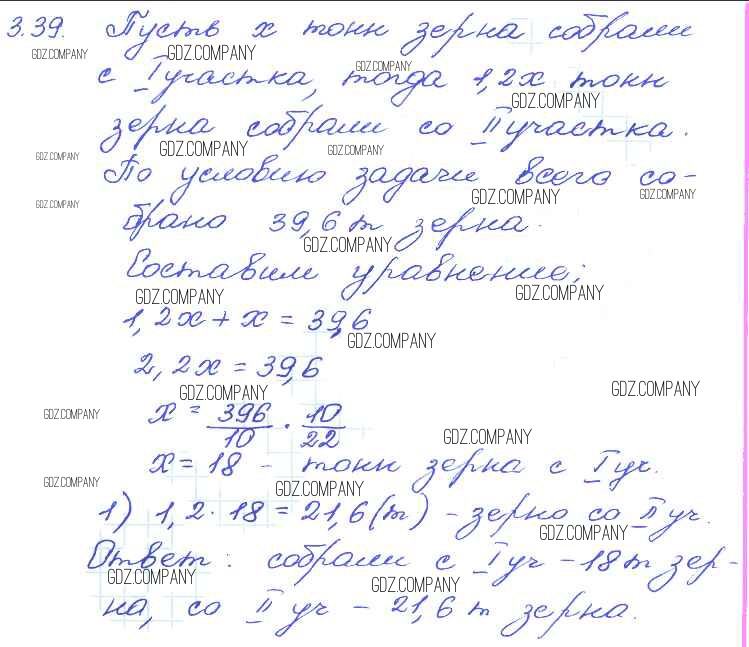 3.39. Пусть x тонн зерна собрали
GDZ.COMPANY GDZ.COMPANY
с I участка, тогда 1,2x тонн
GDZ.COMPANY
GDZ.COMPANY
зерна собрали со II участка.
GDZ.COMPANY GDZ.COMPANY GDZ.COMPANY
По условию задачи всего со-
GDZ.COMPANY GDZ.COMPANY
GDZ.COMPANY
брано 39,6 т зерна.
GDZ.COMPANY
Составим уравнение:
GDZ.COMPANY GDZ.COMPANY
1,2x + x = 39,6
GDZ.COMPANY
2,2x = 39,6
GDZ.COMPANY GDZ.COMPANY
x = 396/10 · 10/22
GDZ.COMPANY GDZ.COMPANY
x = 18 - тонн зерна с I уч.
GDZ.COMPANY GDZ.COMPANY
1) 1,2 · 18 = 21,6 (т) - зерно со II уч.
GDZ.COMPANY
Ответ: собрали с I уч - 18 т зер-
GDZ.COMPANY GDZ.COMPANY
на, со II уч - 21,6 т зерна.